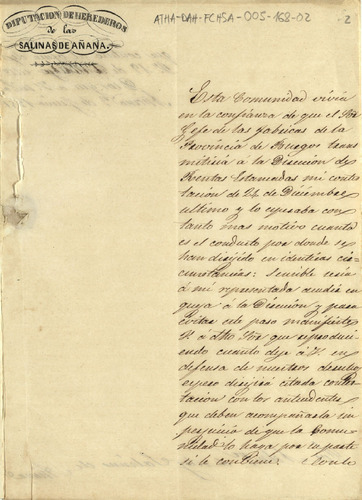 DIPUTACION DE HEREDEROS
de las
SALINAS DE AÑANA.
ATHA-DAH-FCHSA-005-168-02
2
Esta Comunidad vivia
en la confianza de que el Sor
Jefe de las fabricas de la
Provincia de Burgos trans
mitiria á la Direccion de
Rentas Estancadas mi contes
tacion de 24 de Diciembre
ultimo y lo esperaba con
tanto mas motivo cuanto
es el conducto por donde se
han dirijido en identicas cir
cunstancias: Sensible seria
á mi representada acudir en
queja á la Direccion y para
evitar este paso manifieste
V. á dho Sor que reproduci
endo cuanto dije á V. en
defensa de nuestros derechos
espero dirijirá citada Contes
tacion con los antecedentes
que deben acompañarla sin
perjuicio de que la Comu
nidad lo haga por su parte
si le conviene.